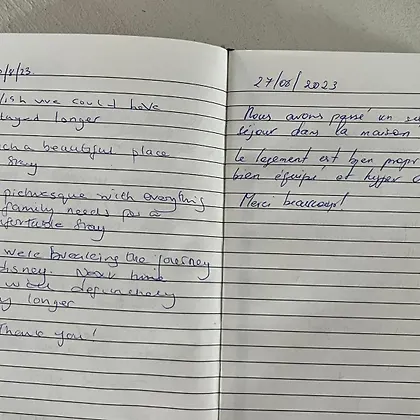 /8/23
wish we could have
stayed longer
such a beautiful place
stay
picturesque with everything
family needs for a
comfortable stay
were breaking the journey
disney. Next time
will definitely
longer
Thank you!
27/08/2023
Nous avons passé un
séjour dans la maison
Le logement est bien propr
bien équipé et hyper
Merci beaucoup!